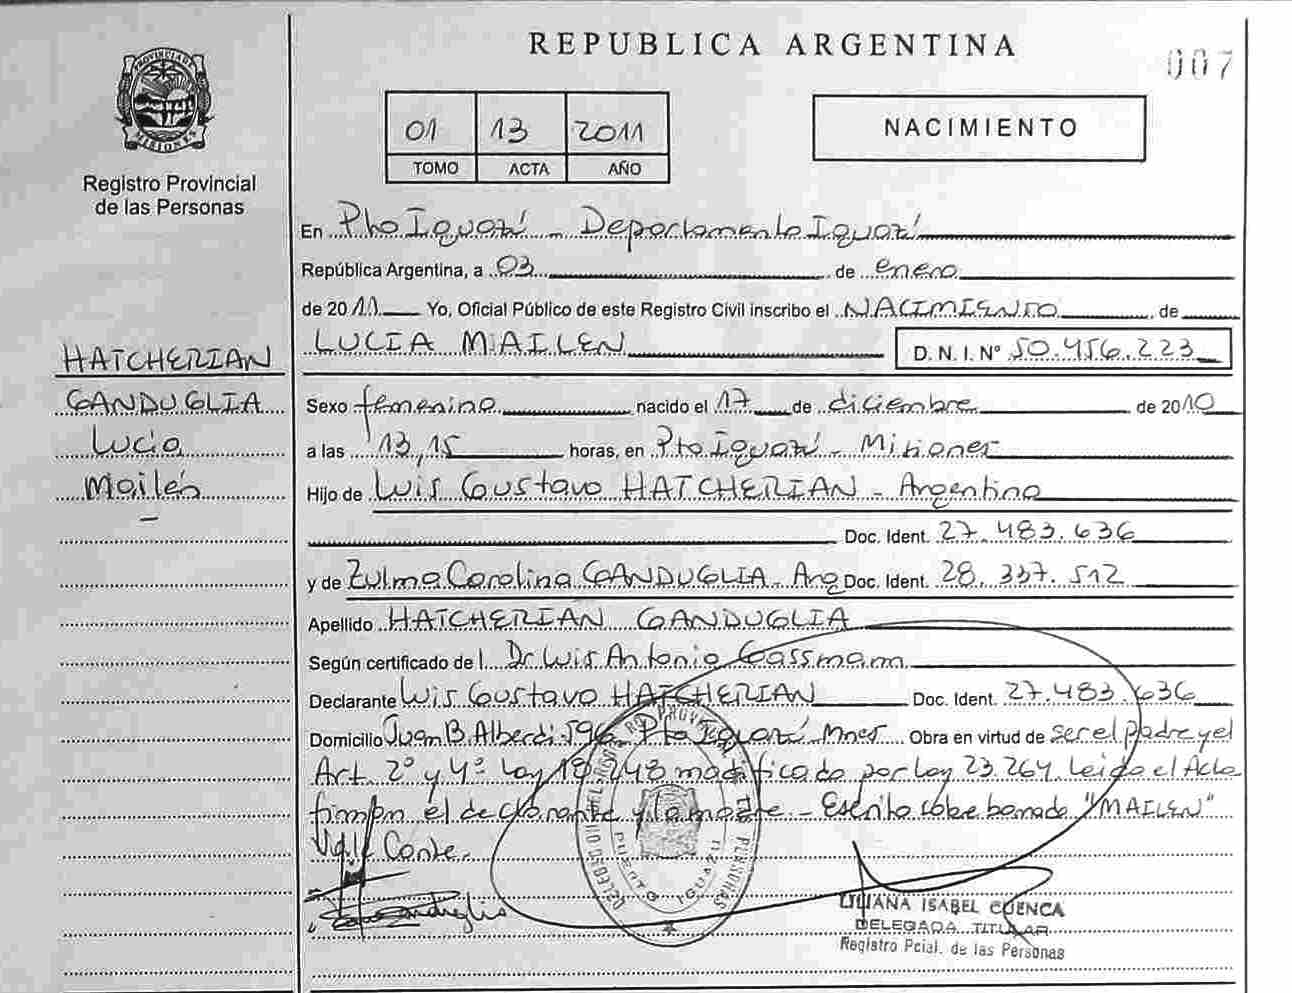 REPUBLICA ARGENTINA
007
PROVINCIA DE MISIONES
Registro Provincial
de las Personas
01 13 2011
TOMO ACTA AÑO
NACIMIENTO
HATCHERIAN
GANDUGLIA
Lucia
Mailén
En Pto Iguazú - Departamento Iguazú
República Argentina, a 03 de enero
de 2011 Yo, Oficial Público de este Registro Civil inscribo el NACIMIENTO de
LUCIA MAILEN D. N. I. Nº 50.456.223
Sexo femenino nacido el 17 de diciembre de 2010
a las 13,15 horas, en Pto Iguazú - Misiones
Hijo de Luis Gustavo HATCHERIAN - Argentina
Doc. Ident. 27.483.636
y de Zulma Carolina GANDUGLIA - Arg Doc. Ident. 28.337.512
Apellido HATCHERIAN GANDUGLIA
Según certificado de l Dr Luis Antonio Gassmann
Declarante Luis Gustavo HATCHERIAN Doc. Ident. 27.483.636
Domicilio Juan B. Alberdi 596 Pto Iguazú - Mnes Obra en virtud de ser el padre y el
Art. 2º y 4º Ley 18.248 modificado por Ley 23.264. Leido el Acta
firman el declarante y la madre - Escrito sobre borrado "MAILEN"
Vale Conte.
PUERTO IGUAZU
LILIANA ISABEL CUENCA
DELEGADA TITULAR
Registro Pcial. de las Personas